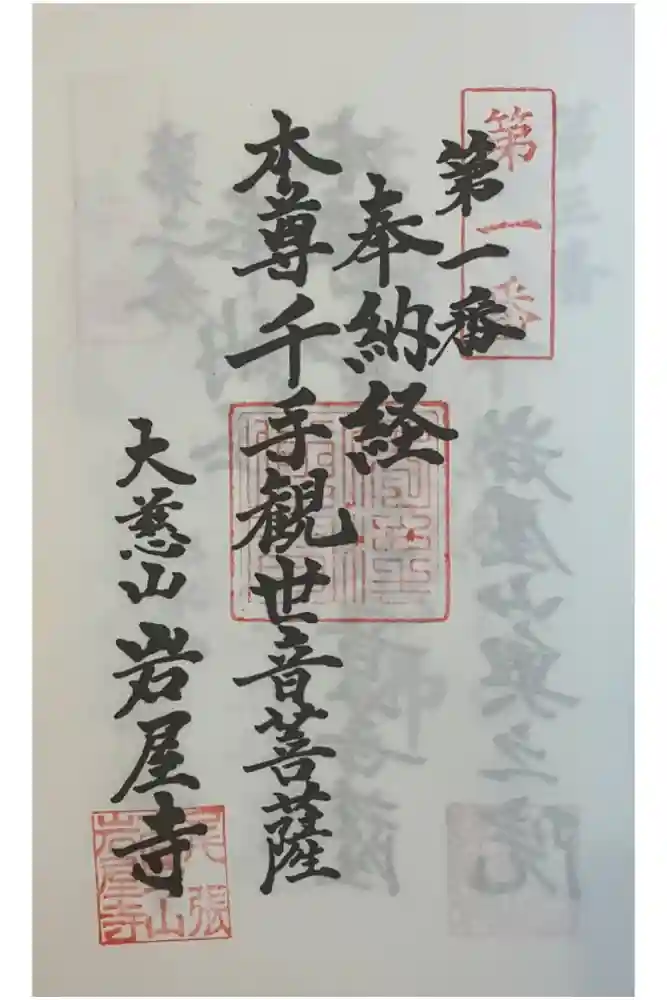 第一番
第一番
奉納経
本尊千手観世音菩薩
大慈山岩屋寺
尾張
山
岩屋寺